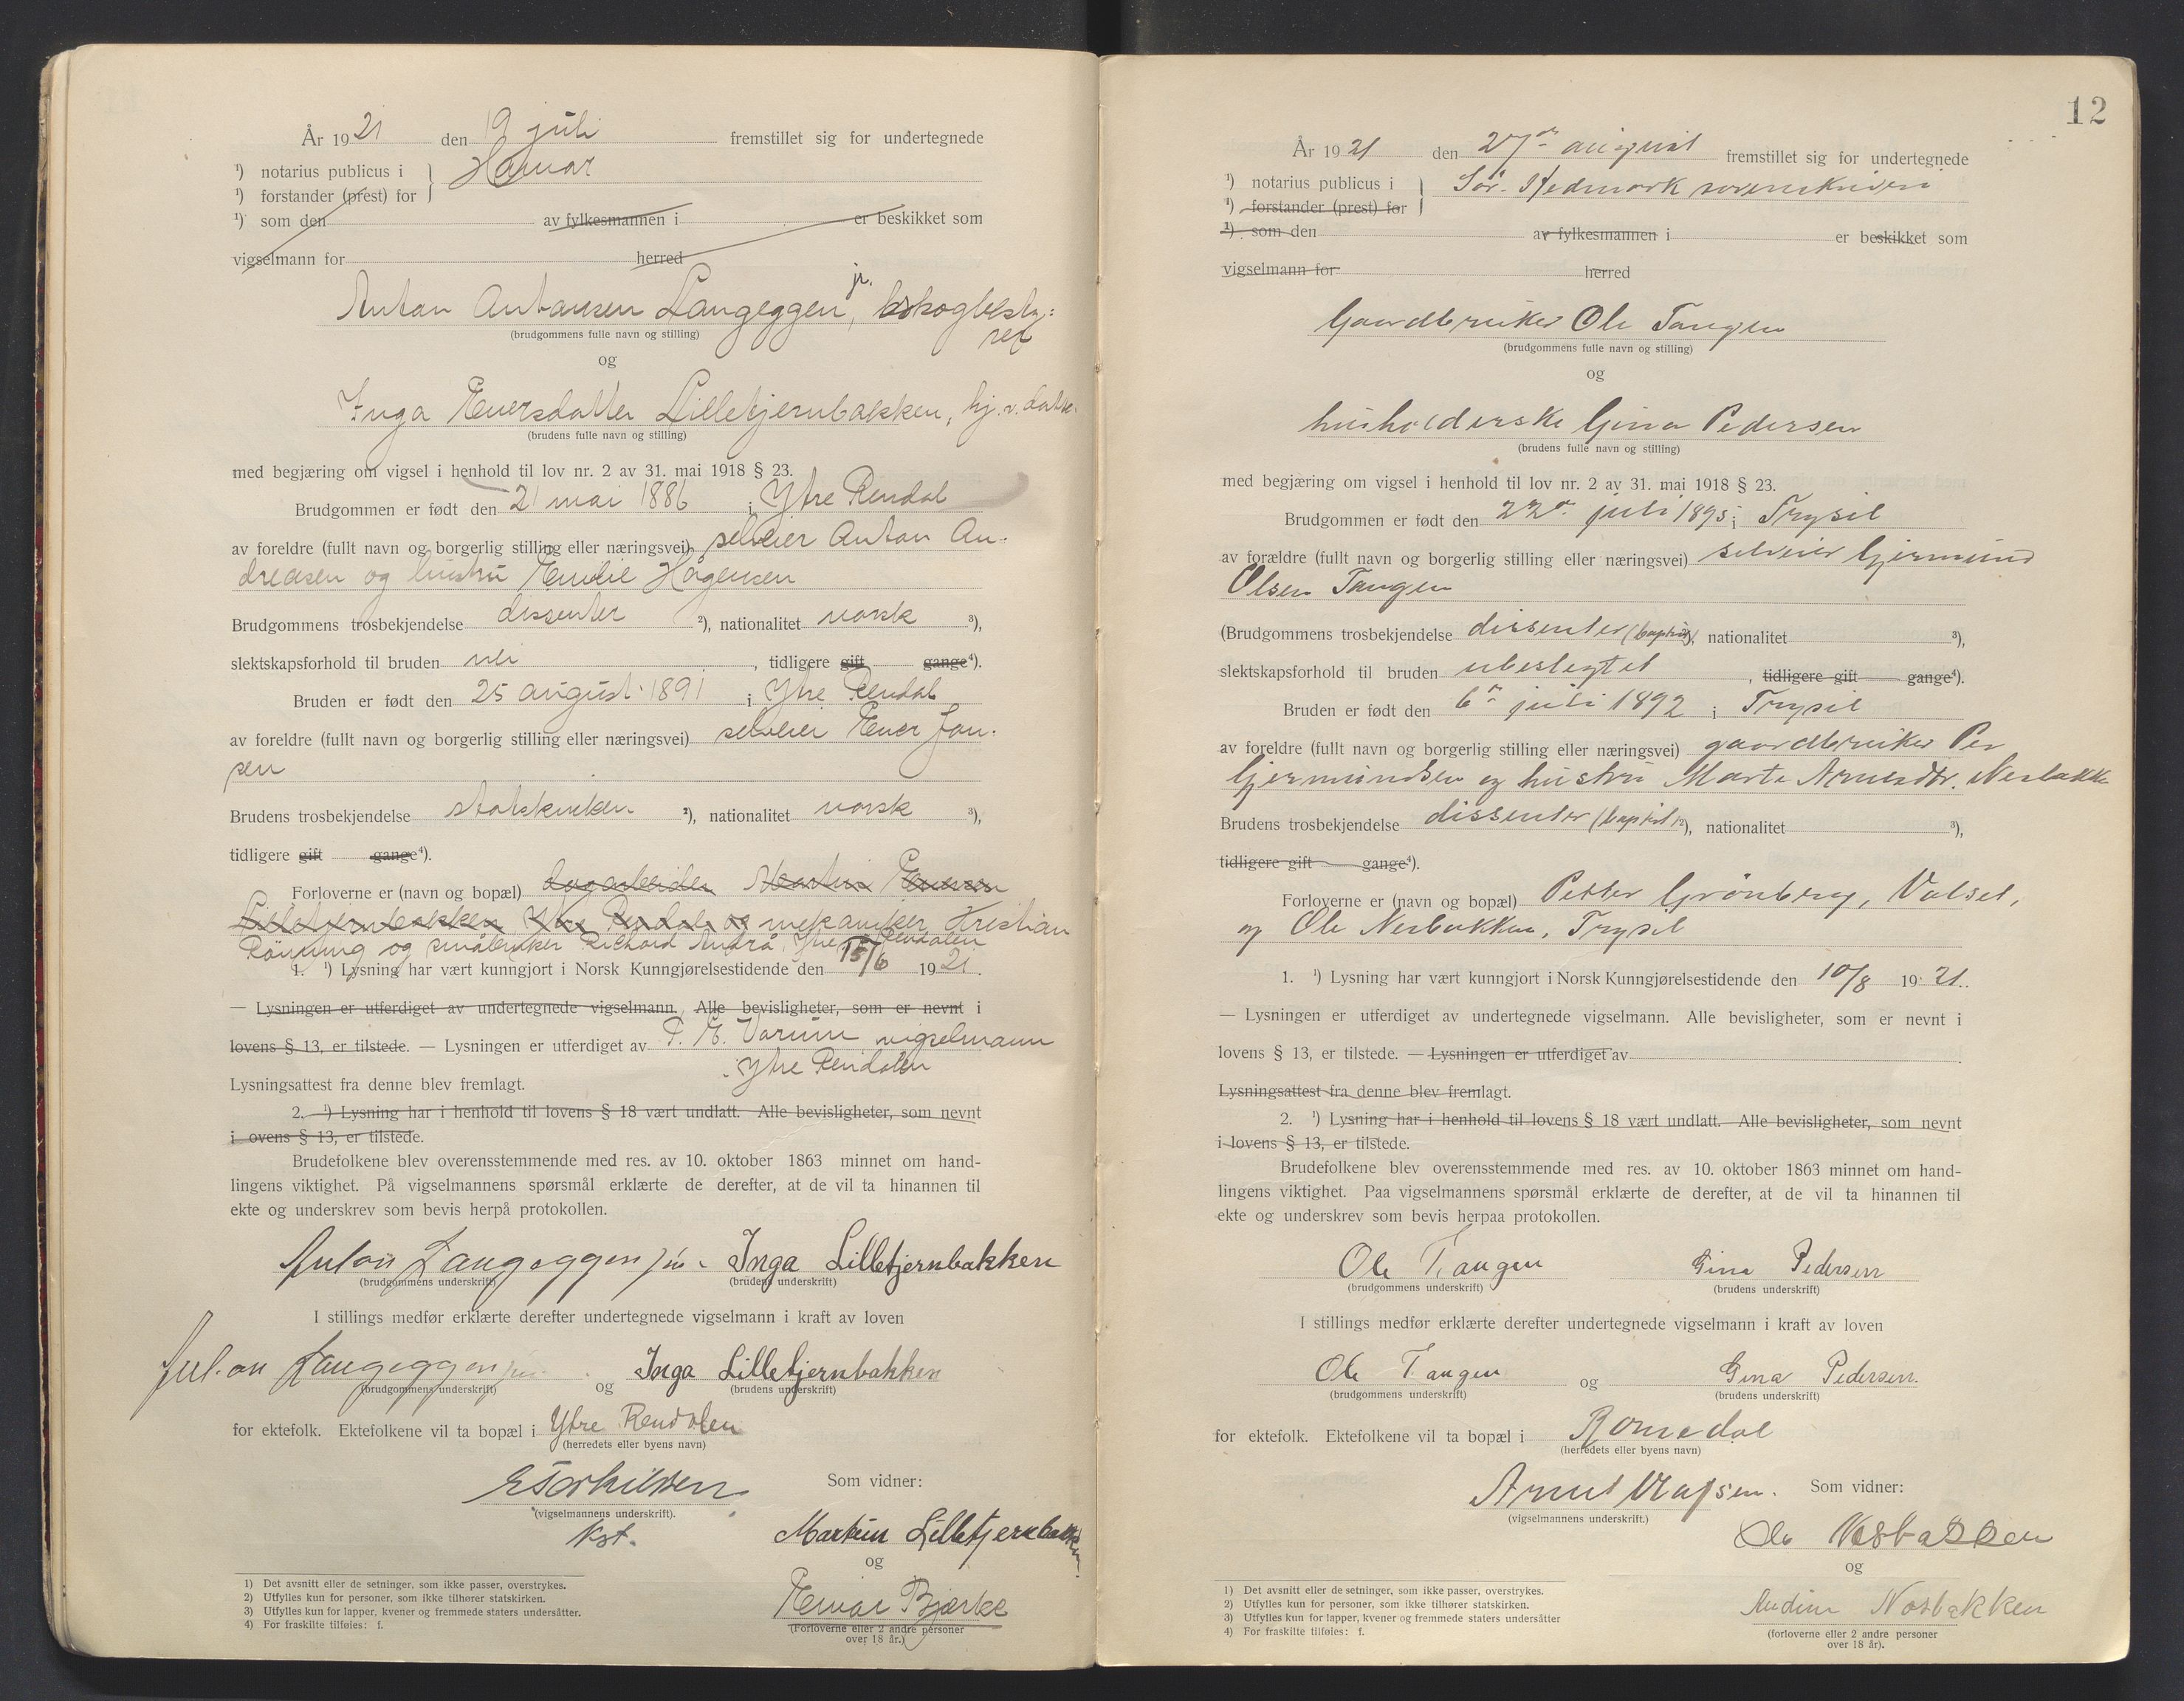 År 1921 den 19 juli fremstillet sig for undertegnede
¹) notarius publicus i } Hamar
¹) forstander (prest) for
¹) som den av fylkesmannen i er beskikket som
vigselmann for herred
Anton Antonsen Langeggen jr., skogbesty-
rer
(brudgommens fulle navn og stilling)
og
Inga Enersdatter Lilletjernbakken, hj.v. datter
(brudens fulle navn og stilling)
med begjæring om vigsel i henhold til lov nr. 2 av 31. mai 1918 § 23.
Brudgommen er født den 21 mai 1886 i Ytre Rendal
av foreldre (fullt navn og borgerlig stilling eller næringsvei) selveier Anton An-
dreasen og hustru Emelie Hågensen
Brudgommens trosbekjendelse dissenter ²), nationalitet norsk ³),
slektskapsforhold til bruden nei , tidligere gift gange⁴).
Bruden er født den 25 august 1891 i Ytre Rendal
av foreldre (fullt navn og borgerlig stilling eller næringsvei) selveier Ener Jon-
sen
Brudens trosbekjendelse statskirken ²), nationalitet norsk ³),
tidligere gift gange⁴).
Forloverne er (navn og bopæl) Martin Enersen
Lilletjernbakken, Ytre Rendal og mekaniker Kristian
Rönning og småbruker Richard Andrå, Ytre Rendalen
1. ¹) Lysning har vært kunngjort i Norsk Kunngjørelsestidende den 15/6 1921.
— Lysningen er utferdiget av undertegnede vigselmann. Alle bevisligheter, som er nevnt i
lovens § 13, er tilstede. — Lysningen er utferdiget av P. E. Vorum vigselmann
Ytre Rendalen
Lysningsattest fra denne blev fremlagt.
2. ¹) Lysning har i henhold til lovens § 18 vært undlatt. Alle bevisligheter, som nevnt
i ovens § 13, er tilstede.
Brudefolkene blev overensstemmende med res. av 10. oktober 1863 minnet om hand-
lingens viktighet. På vigselmannens spørsmål erklærte de derefter, at de vil ta hinannen til
ekte og underskrev som bevis herpå protokollen.
Anton Langeggen jun. Inga Lilletjernbakken
(brudgommens underskrift) (brudens underskrift)
I stillings medfør erklærte derefter undertegnede vigselmann i kraft av loven
Anton Langeggen jun. og Inga Lilletjernbakken
(brudgommens underskrift) (brudens underskrift)
for ektefolk. Ektefolkene vil ta bopæl i Ytre Rendalen
(herredets eller byens navn)
E Torkildsen Som vidner:
(vigselmannens underskrift).
kst. Martin Lilletjernbakken
og
Einar Bjørke
(Forloverne eller 2 andre personer
over 18 år.)
1) Det avsnitt eller de setninger, som ikke passer, overstrykes.
2) Utfylles kun for personer, som ikke tilhører statskirken.
3) Utfylles kun for lapper, kvener og fremmede staters undersåtter.
4) For fraskilte tilføies: f.
12
År 1921 den 27de august fremstillet sig for undertegnede
¹) notarius publicus i } Sör-Hedmark sorenskriveri
¹) forstander (prest) for
¹) som den av fylkesmannen i er beskikket som
vigselmann for herred
Gaardbruker Ole Tangen
(brudgommens fulle navn og stilling)
og
husholderske Gina Pedersen
(brudens fulle navn og stilling)
med begjæring om vigsel i henhold til lov nr. 2 av 31. mai 1918 § 23.
Brudgommen er født den 22de juli 1895 i Trysil
av forældre (fullt navn og borgerlig stilling eller næringsvei) selveier Gjermund
Olsen Tangen
(Brudgommens trosbekjendelse dissenter (baptist), nationalitet ³),
slektskapsforhold til bruden ubeslegtet , tidligere gift gange⁴).
Bruden er født den 6te juli 1892 i Trysil
av foreldre (fullt navn og borgerlig stilling eller næringsvei) gaardbruker Per
Gjermundsen og hustru Marte Arnesdtr. Nesbakke
Brudens trosbekjendelse dissenter (baptist ²), nationalitet ³),
tidligere gift gange⁴).
Forloverne er (navn og bopæl) Petter Grönberg, Valset,
og Ole Nesbakken, Trysil
1. ¹) Lysning har vært kunngjort i Norsk Kunngjørelsestidende den 10/8 1921.
— Lysningen er utferdiget av undertegnede vigselmann. Alle bevisligheter, som er nevnt i
lovens § 13, er tilstede. — Lysningen er utferdiget av
Lysningsattest fra denne blev fremlagt.
2. ¹) Lysning har i henhold til lovens § 18 vært undlatt. Alle bevisligheter, som nevnt
i lovens § 13, er tilstede.
Brudefolkene blev overensstemmende med res. av 10. oktober 1863 minnet om hand-
lingens viktighet. Paa vigselmannens spørsmål erklærte de derefter, at de vil ta hinannen til
ekte og underskrev som bevis herpaa protokollen.
Ole Tangen Gina Pedersen
(brudgommens underskrift) (brudens underskrift)
I stillings medfør erklærte derefter undertegnede vigselmann i kraft av loven
Ole Tangen og Gina Pedersen.
(brudgommens underskrift) (brudens underskrift)
for ektefolk. Ektefolkene vil ta bopæl i Romedal
(herredets eller byens navn)
Arnet Olafsen. Som vidner:
(vigselmannens underskrift.)
Ole Nesbakken
og
Audun Nesbakken
(forloverne eller 2 andre personer
over 18 år).
1) Det avsnitt eller de setninger, som ikke passer, overstrykes.
2) Utfylles kun for personer, som ikke tilhører statskirken.
3) Utfylles kun for lapper, kvener og fremmede staters undersåtter
4) For fraskilte tilføies: f.